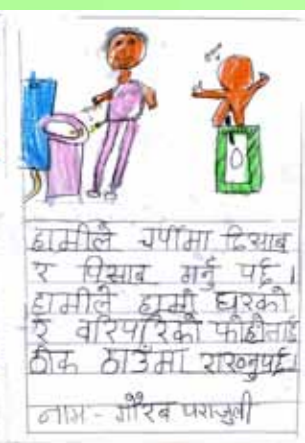 हामीले चर्पीमा दिसाब
र पिसाब गर्नु पर्छ ।
हामीले हाम्रो घरको
र वरिपरिको फोहोरलाई
ठीक ठाउँमा राख्नुपर्छ
नाम - गौरब पराजुली